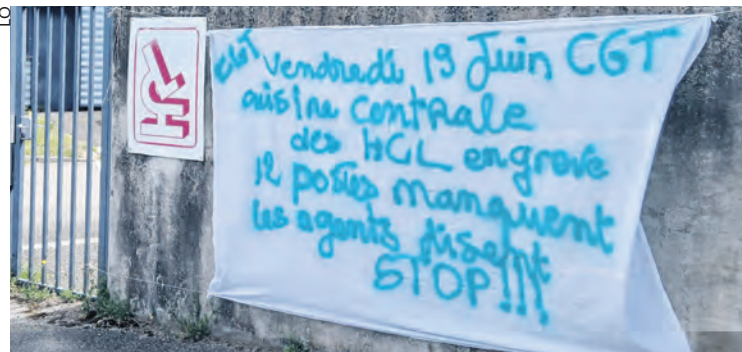 HCL
CGT vendredi 19 Juin CGT
cuisine centrale
des HCL en grève
12 postes manquent
les agents disent
STOP!!!